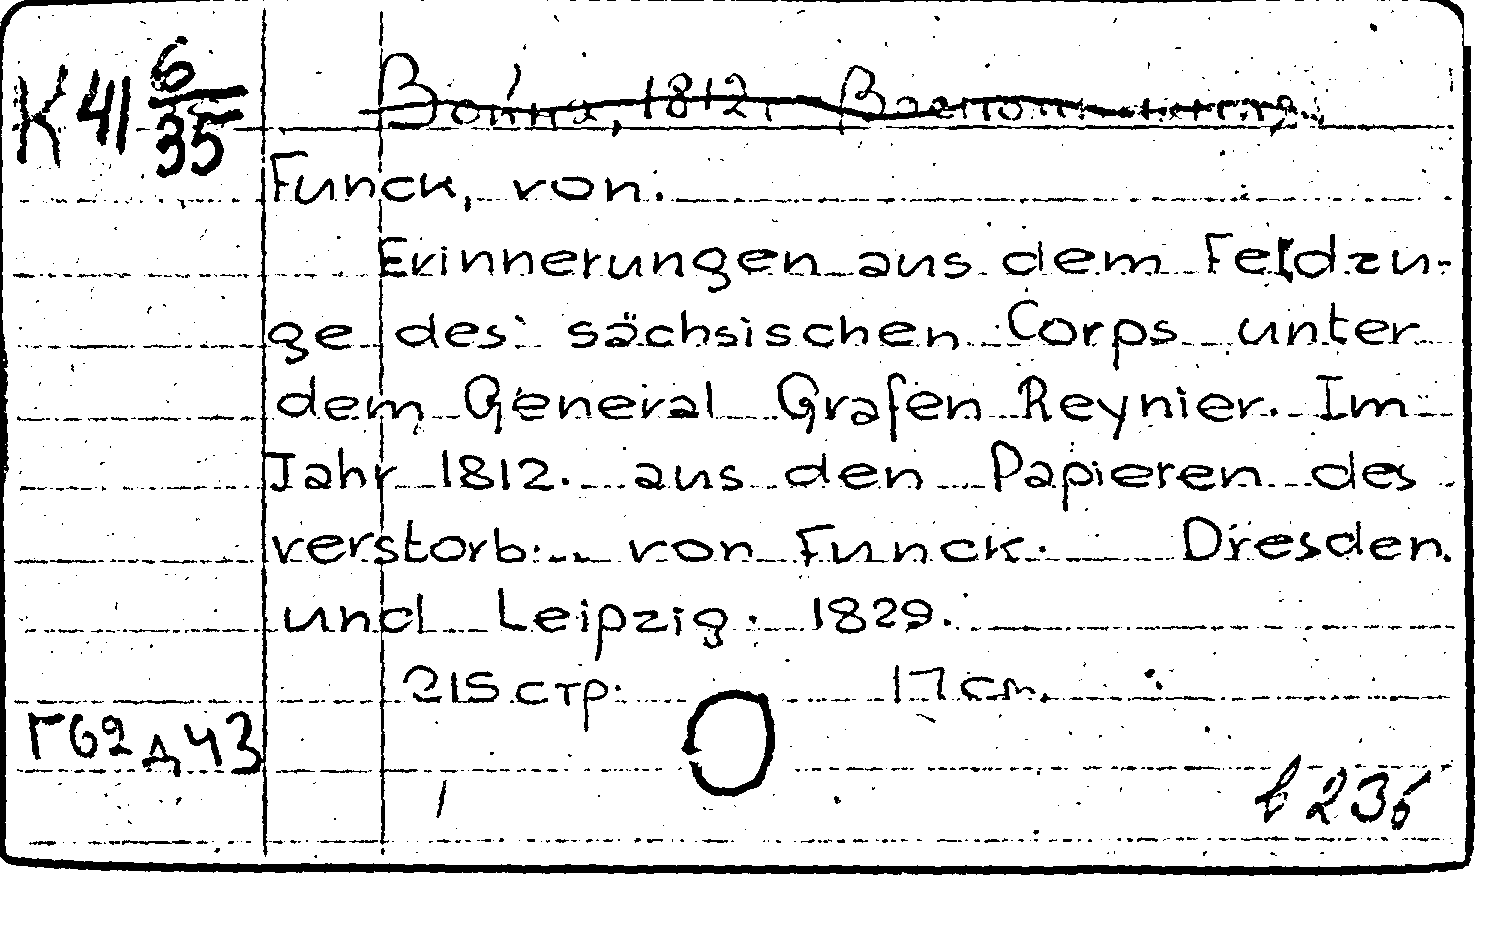 К 41 6/35
Война, 1812. Воспоминания.
Funck, von.
Erinnerungen aus dem Feldzu-
ge des sächsischen Corps unter
dem General Grafen Reynier. Im
Jahr 1812. aus den Papieren des
verstorb. von Funck. Dresden
und Leipzig. 1829.
215 стр. 17 cm.
Г62 д 43
в 235